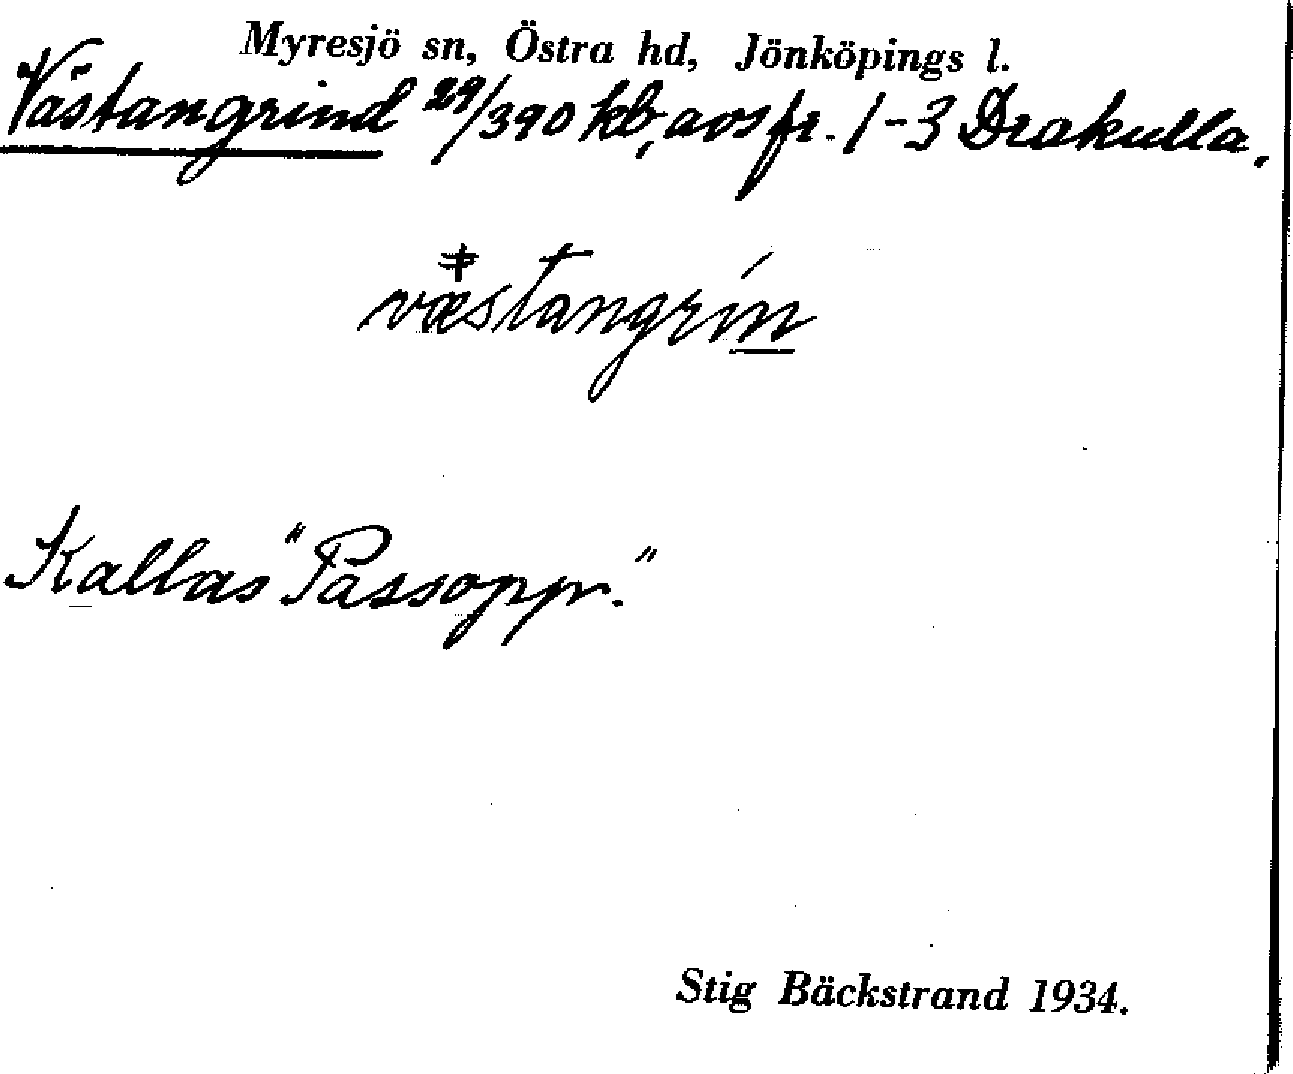 Myresjö sn, Östra hd, Jönköpings l.
Västangrind 29/390 kb, avs fr. 1-3 Drakulla.
væ̀stangrín
Kallas "Passopp."
Stig Bäckstrand 1934.